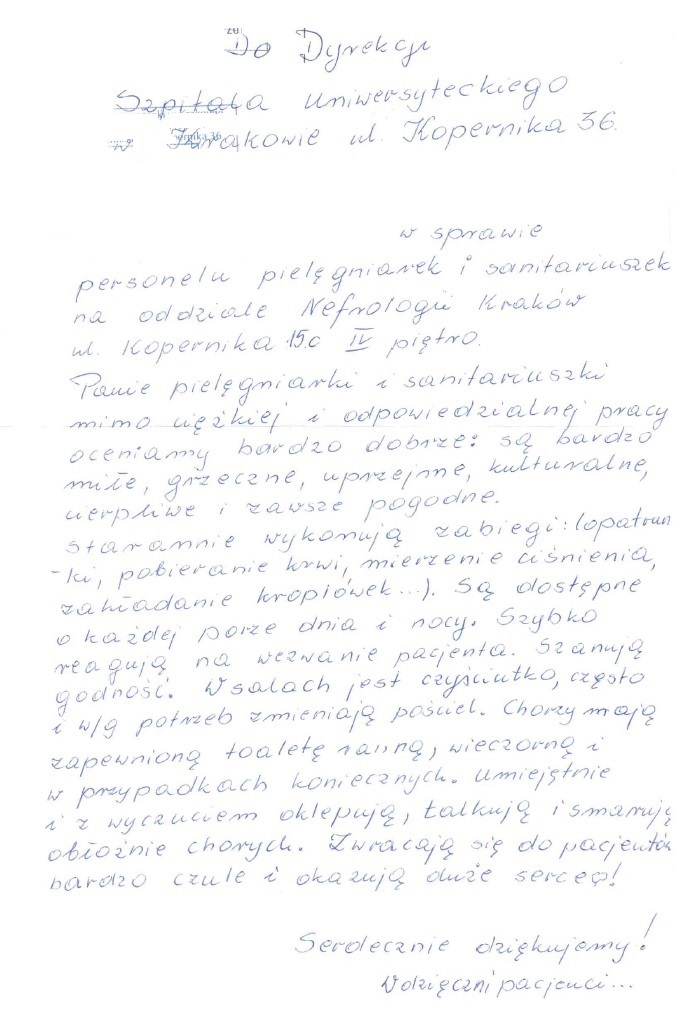 Do Dyrekcji
Szpitala Uniwersyteckiego
w Krakowie ul. Kopernika 36.
w sprawie
personelu pielęgniarek i sanitariuszek
na oddziale Nefrologii Kraków
ul. Kopernika 15c IV piętro.
Panie pielęgniarki i sanitariuszki
mimo ciężkiej i odpowiedzialnej pracy
oceniamy bardzo dobrze: są bardzo
miłe, grzeczne, uprzejme, kulturalne,
cierpliwe i zawsze pogodne.
Starannie wykonują zabiegi: (opatrun
-ki, pobieranie krwi, mierzenie ciśnienia,
zakładanie kroplówek...). Są dostępne
o każdej porze dnia i nocy. Szybko
reagują na wezwanie pacjenta. Szanują
godność. W salach jest czyściutko, często
i w/g potrzeb zmieniają pościel. Chorzy mają
zapewnioną toaletę ranną, wieczorną i
w przypadkach koniecznych. Umiejętnie
i z wyczuciem oklepują, talkują i smarują
obłożnie chorych. Zwracają się do pacjentów
bardzo czule i okazują duże serce!
Serdecznie dziękujemy!
Wdzięczni pacjenci...